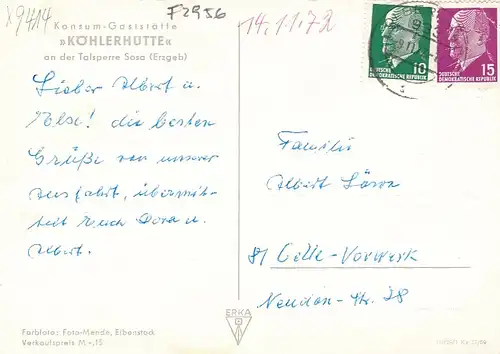 X9414
F2956
14.11.72
Konsum-Gaststätte
»KÖHLERHÜTTE«
an der Talsperre Sosa (Erzgeb)
Lieber Albert u.
Else! die besten
Grüße von unserer
Ausfahrt, übermit-
telt Euch Dora u.
Albert.
10
DEUTSCHE
DEMOKRATISCHE REPUBLIK
15
DEUTSCHE
DEMOKRATISCHE REPUBLIK
Familie
Albert
31 Celle-Vorwerk
Str. 28
ERKA
Farbfoto: Foto-Mende, Eibenstock
Verkaufspreis M -,15